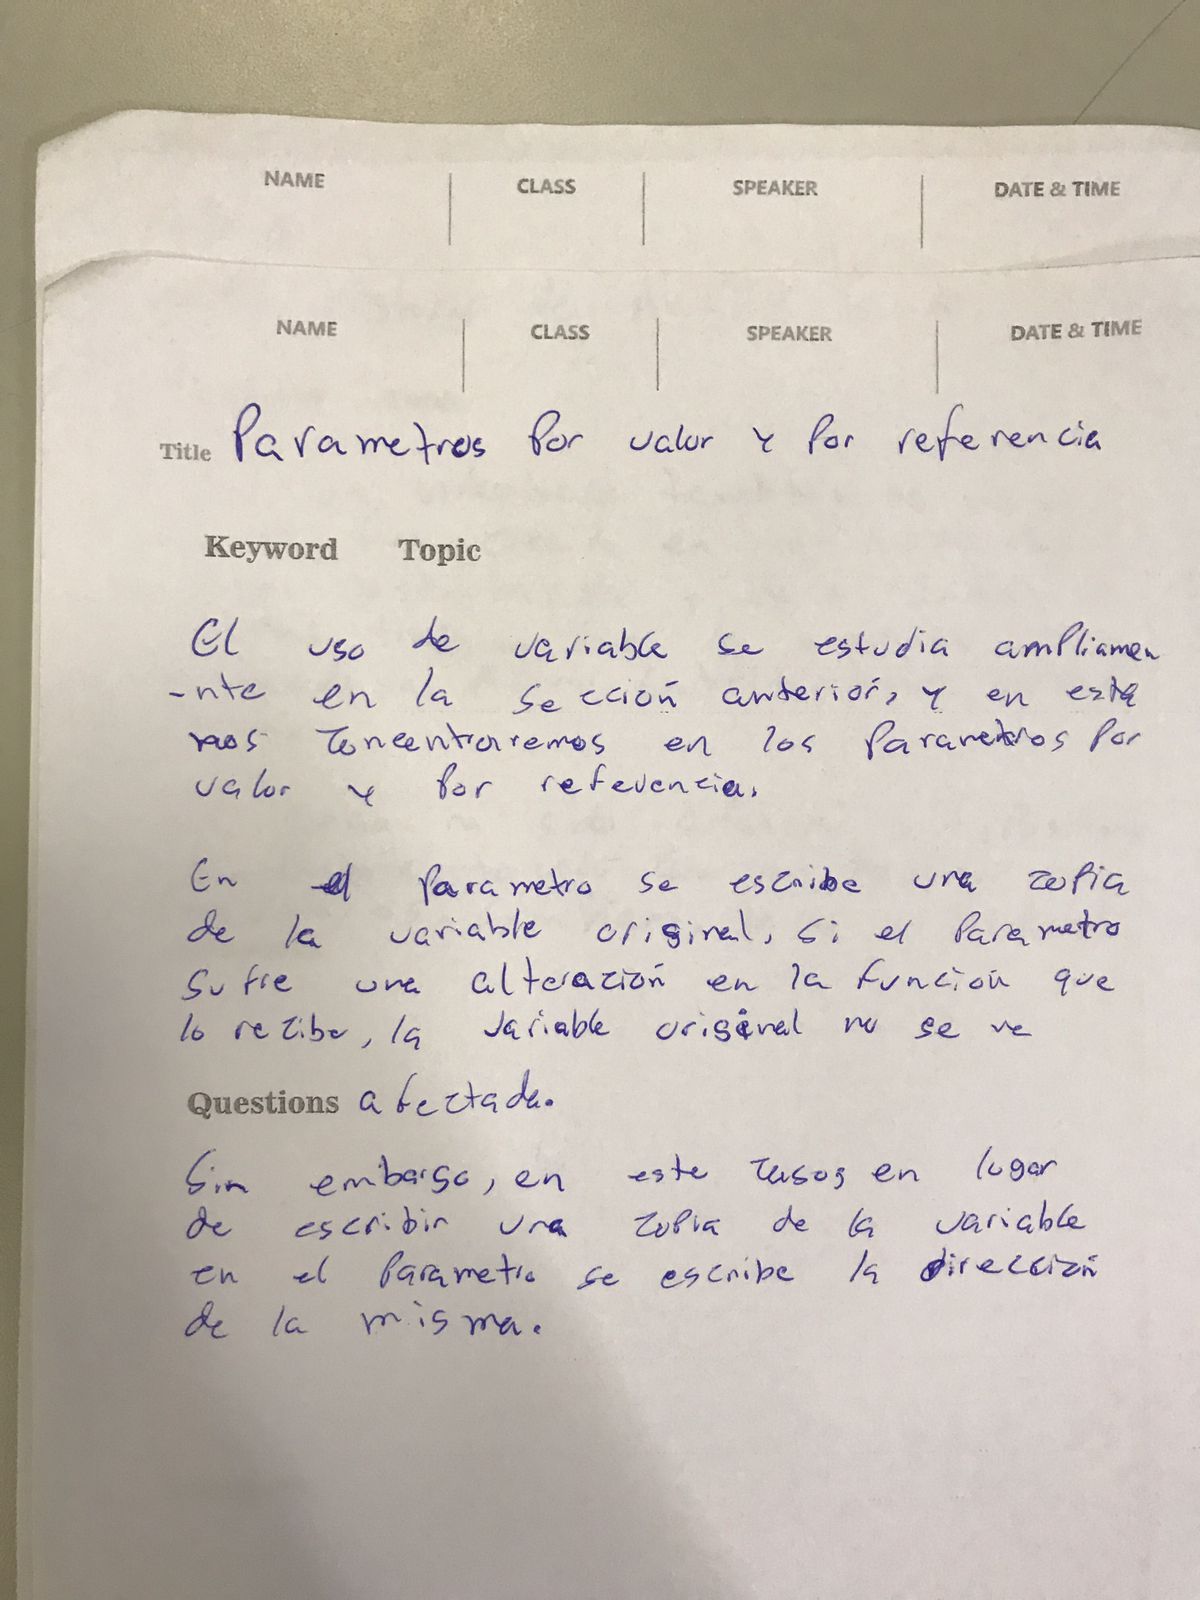 NAME CLASS SPEAKER DATE & TIME
NAME CLASS SPEAKER DATE & TIME
Title Parametros Por valor y Por referencia
Keyword Topic
El uso de variable se estudia ampliamen
-nte en la sección anterior, y en esta
nos concentraremos en los Parametros Por
valor y Por referencia.
En el parametro se escribe una copia
de la variable original, si el Parametro
sufre una alteración en la función que
lo recibe, la variable original no se ve
Questions afectada.
Sin embargo, en este casos en lugar
de escribir una copia de la variable
en el Parametro se escribe la dirección
de la misma.